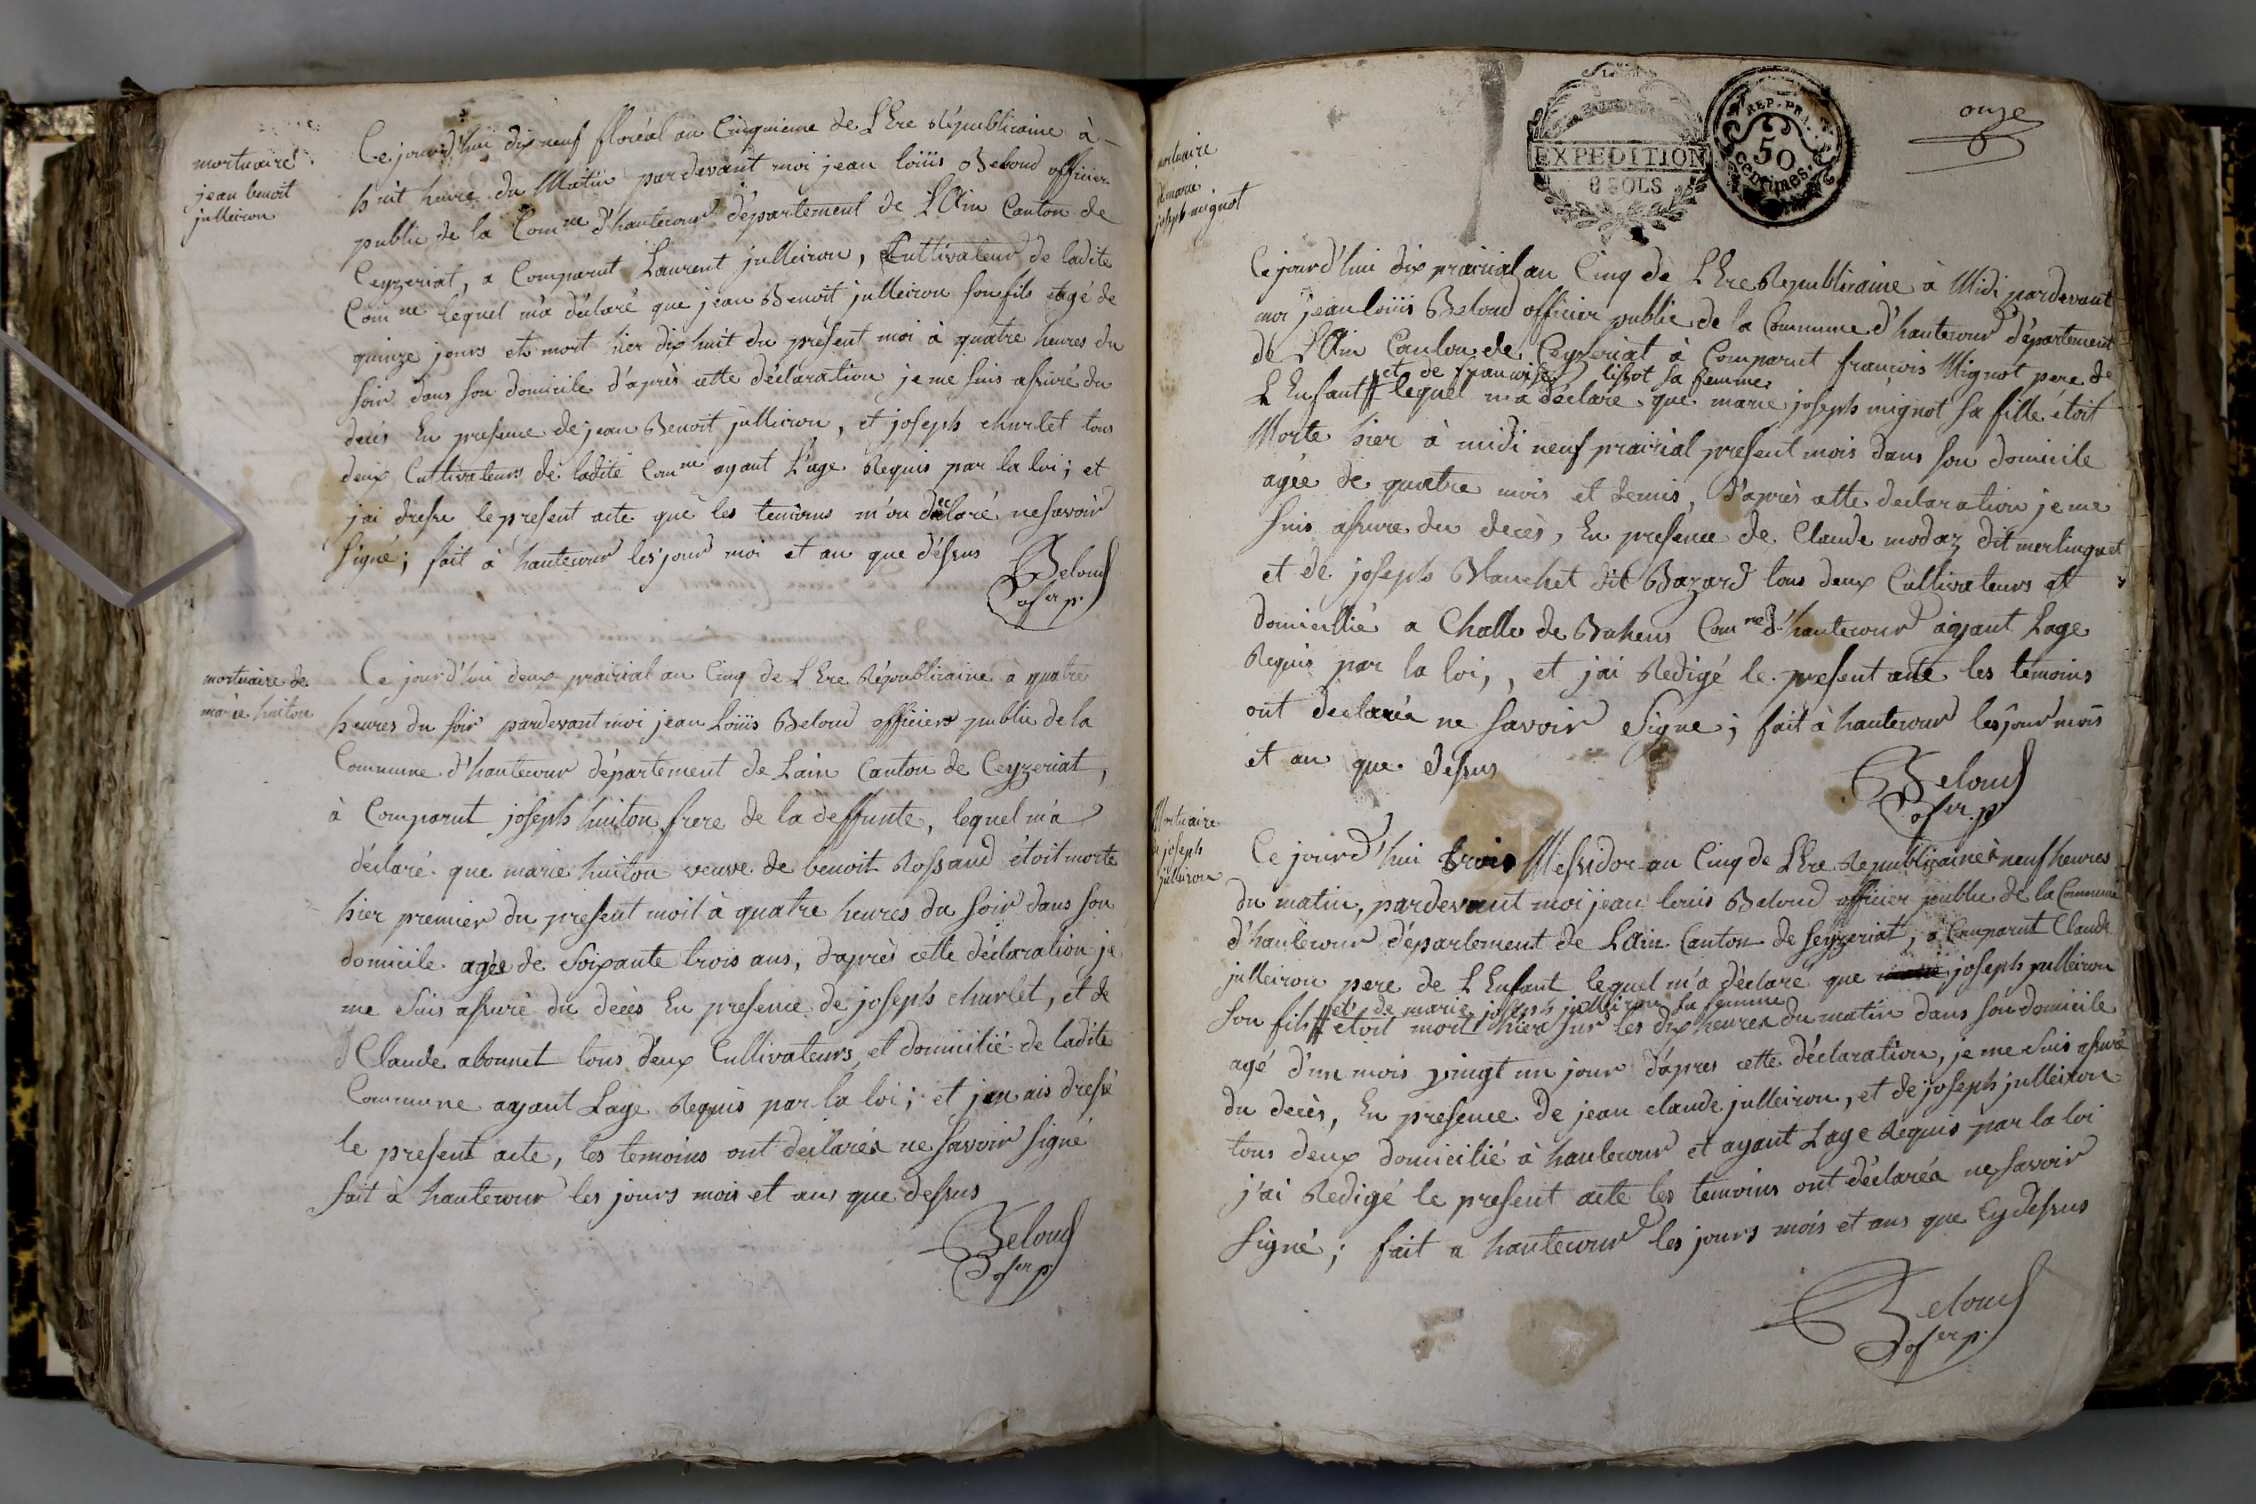 mortuaire
jean benoit
julleiron
Ce jourd'hui dix neuf floréal an Cinquieme de L'Ere Républicaine à
huit heure du Matin pardevant moi jean loüis Beloud officier
public de la Comne d'hautecour département de L'Ain Canton de
Ceyzeriat, a Comparut Laurent julleiron, Cultivateur de ladite
Comne lequel m'a déclaré que jean Benoit julleiron son fils agé de
quinze jours et mort hier dix huit du présent moi à quatre heures du
soir dans son domicile d'après cette déclaration je me suis assuré du
decès En presence de jean Benoit julleiron, et joseph churlet tous
deux Cultivateurs de ladite Comne ayant L'age Requis par la loi; et
jai dressé le present acte que les temoins m'on déclaré ne savoir
signé; fait à hautecour les jour moi et an que dessus
Beloud
ofer p.
mortuaire de
marie huiton
Ce jourd'hui deux prairial an Cinq de L'Ere Républicaine a quatre
heures du soir pardevant moi jean Loüis Beloud officier public de la
Commune d'hautecour département de Lain Canton de Ceyzeriat,
à Comparut joseph huiton frere de la deffunte, lequel m'a
déclaré que marie huiton veuve de benoit Rossand étoit morte
hier premier du present moit à quatre heures du soir dans son
domicile agée de soixante trois ans, d'après cette déclaration je
me suis assuré du decès En presence de joseph churlet, et de
Claude abonnet tous deux Cultivateurs et domicilié de ladite
Commune ayant Lage Requis par la loi; et j'en ais dressé
le present acte, les temoins ont declarés ne savoir signé
fait à hautecour les jours mois et ans que dessus
Beloud
ofer p.
EXPEDITION
8 SOLS
REP. FRA.
50
centimes.
onze
mortuaire
de marie
joseph mignot
Ce jourd'hui dix prairial an Cinq de L'Ere Republicaine à Midi pardevant
moi jean loüis Beloud officier public de la Commune d'hautecour département
de L'Ain Canton de Ceyzeriat à Comparut francois Mignot pere de
et de francoise lissot sa femme
L'Enfant # lequel m'a déclaré que marie joseph mignot sa fille étoit
Morte hier à midi neuf prairial present mois dans son domicile
agée de quatre mois et demis, d'après cette declaration je me
suis assuré du decès, En presence de Claude modaz dit merlinguet
et de joseph Blanchet dit Bazard tous deux Cultivateurs et
domicillié a Challe de Bohens Comne d'hautecour ayant Lage
Requis par la loi, , et jai Redigé le present acte les témoins
ont declarés ne savoir Signe; fait à hautecour les jour mois
et an que dessus
Beloud
ofer. p
Mortuaire
de joseph
julleiron
Ce jourd'hui trois Messidor an Cinq de L'Ere Republicaine à neuf heures
du matin, pardevant moi jean louis Beloud officier public de la Commune
d'hautecour département de L'Ain Canton de seyzeriat, a Comparut Claude
julleiron pere de L'Enfant lequel m'a déclaré que joseph julleiron
et de marie joseph julleiron sa femme
son fils # étoit mort hier sur les dix heures du matin dans son domicile
agé d'un mois vingt un jour d'apres cette déclaration, je me suis assuré
du decès, En présence de jean claude julleiron, et de joseph julleiron
tous deux domicilié à hautecour et ayant Lage Requis par la loi
j'ai Redigé le present acte les temoins ont déclarés ne savoir
signé; fait a hautecour les jours mois et ans que Cy dessus
Beloud
ofer p.